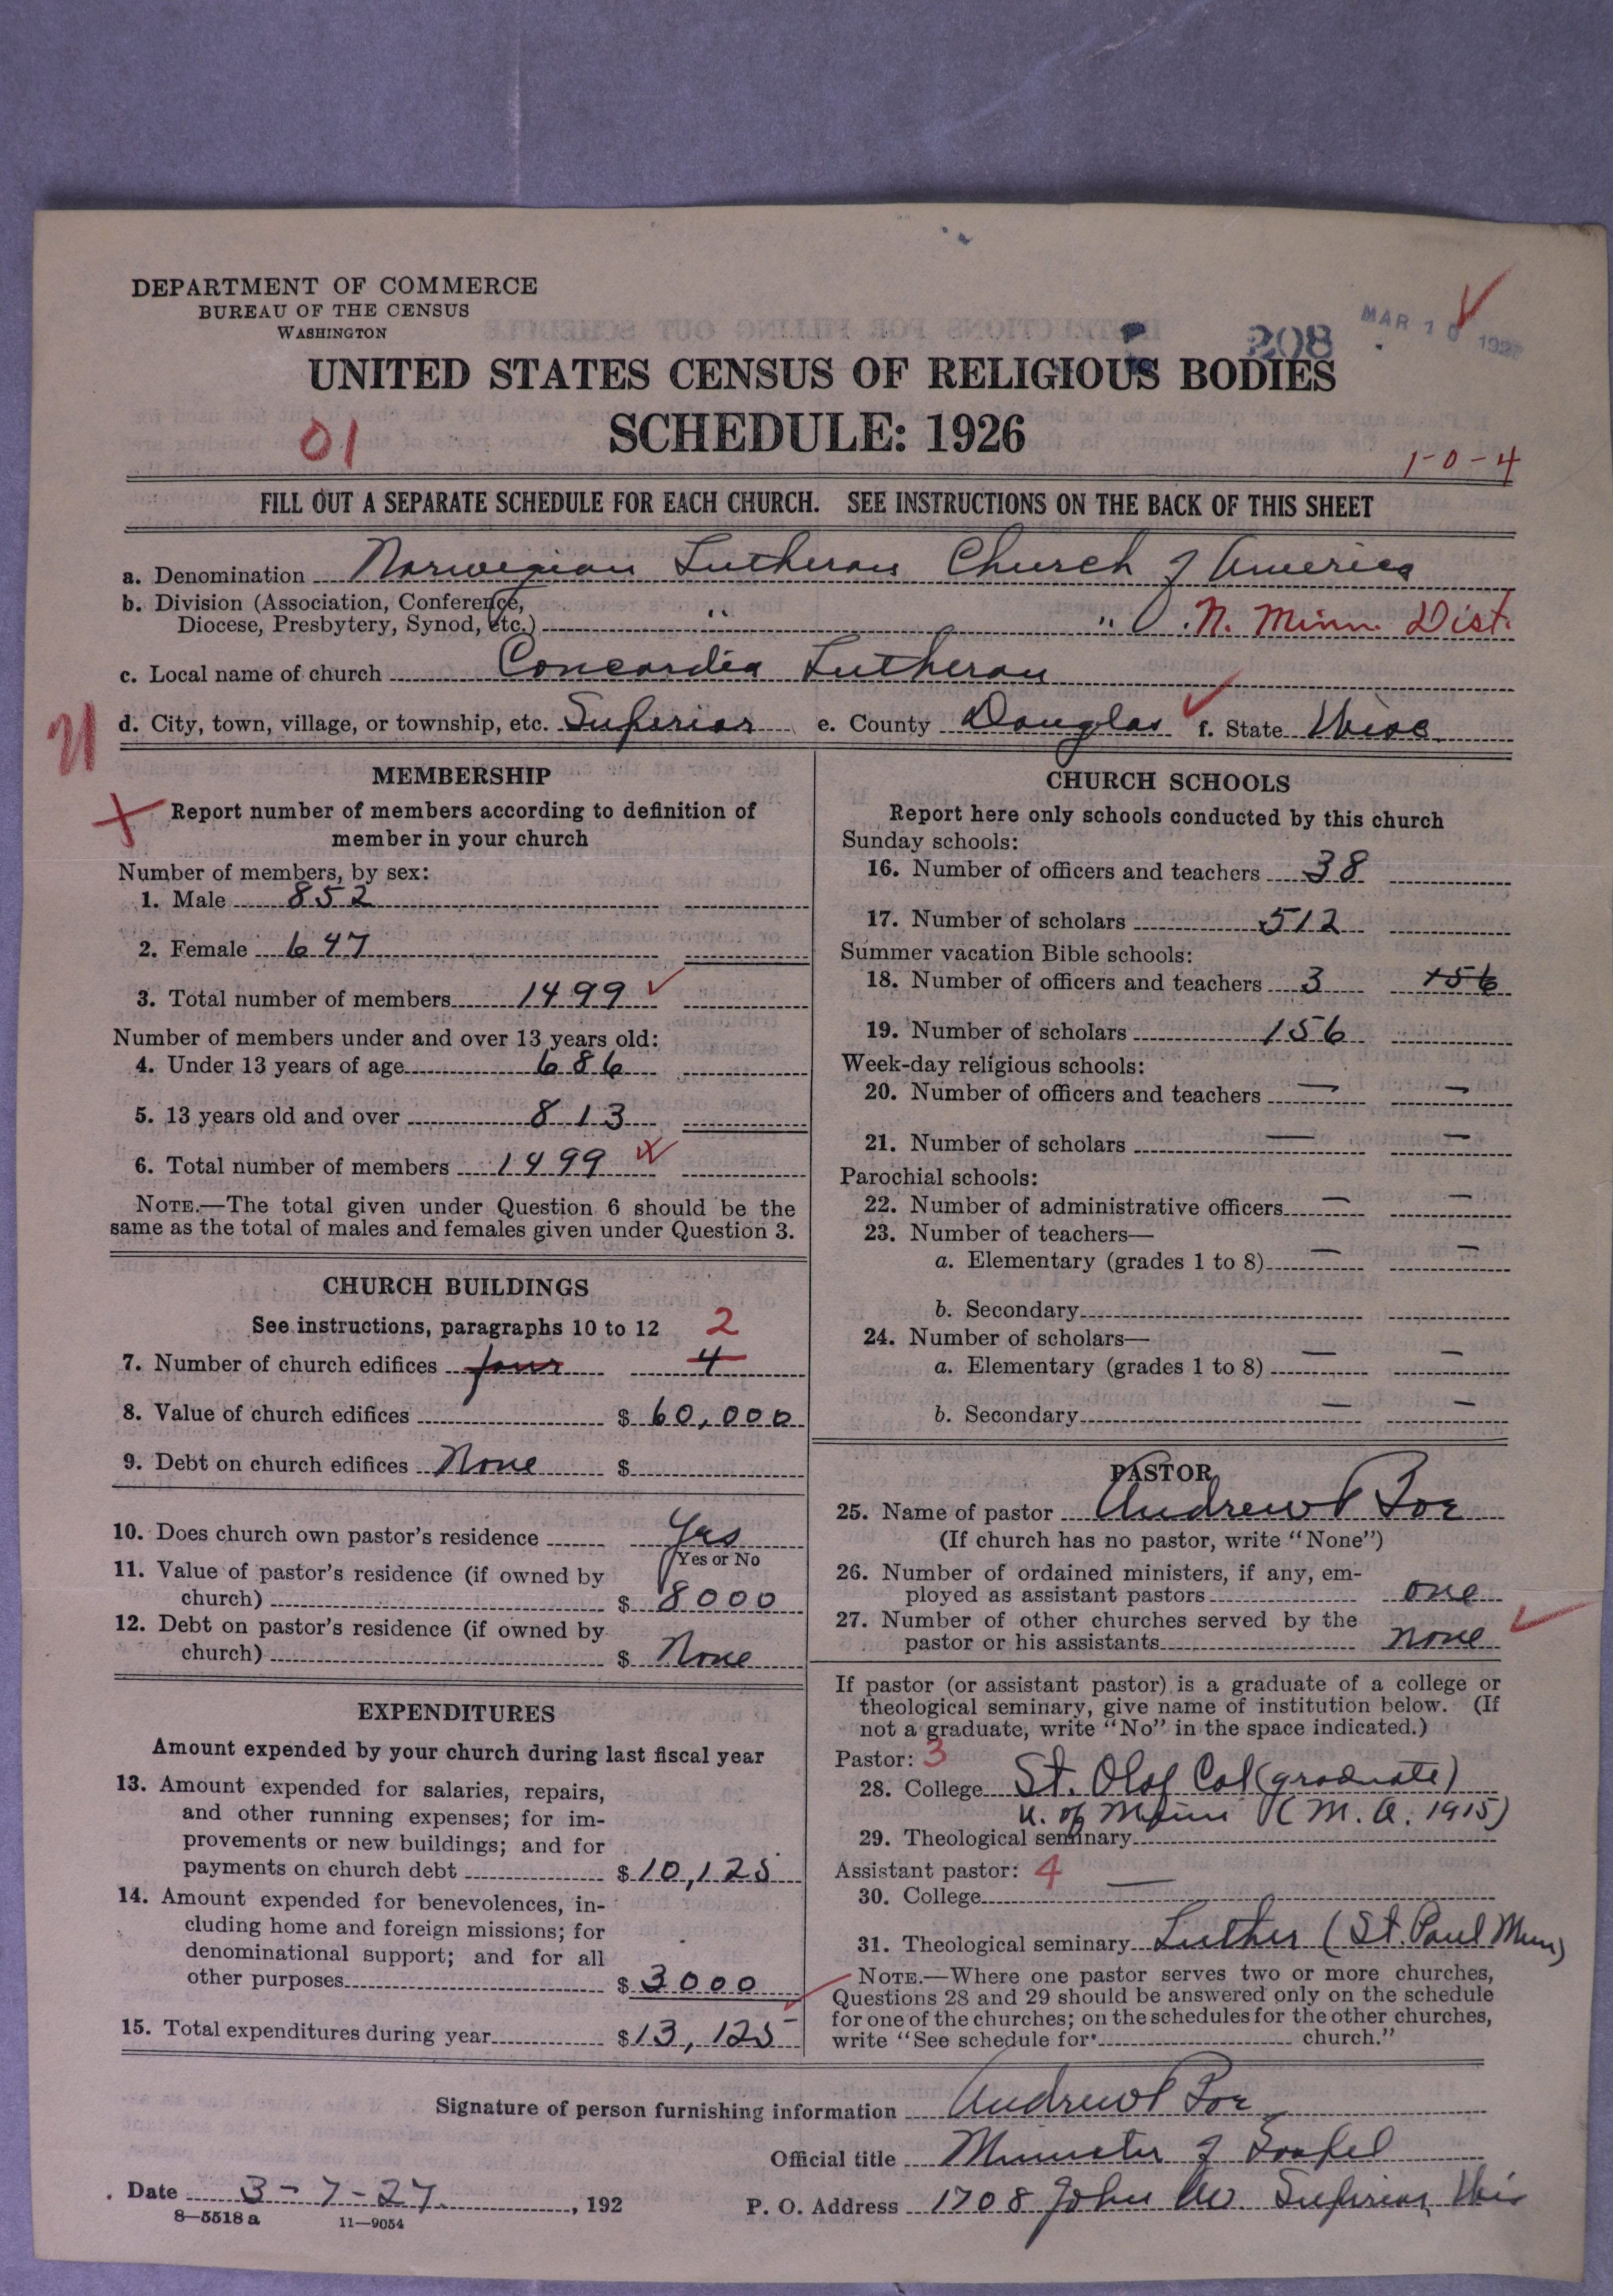 DEPARTMENT OF COMMERCE
BUREAU OF THE CENSUS
WASHINGTON
208
MAR 10 1927
UNITED STATES CENSUS OF RELIGIOUS BODIES
SCHEDULE: 1926
01
1-0-4
FILL OUT A SEPARATE SCHEDULE FOR EACH CHURCH. SEE INSTRUCTIONS ON THE BACK OF THIS SHEET
a. Denomination Norwegian Lutheran Church of America
b. Division (Association, Conference,
Diocese, Presbytery, Synod, etc.) " " N. Minn. Dist.
c. Local name of church Concordia Lutheran
d. City, town, village, or township, etc. Superior e. County Douglas f. State Wisc
MEMBERSHIP
Report number of members according to definition of
member in your church
Number of members, by sex:
1. Male 852
2. Female 647
3. Total number of members 1499
Number of members under and over 13 years old:
4. Under 13 years of age 686
5. 13 years old and over 813
6. Total number of members 1499
NOTE.—The total given under Question 6 should be the
same as the total of males and females given under Question 3.
CHURCH BUILDINGS
See instructions, paragraphs 10 to 12 2
7. Number of church edifices four 4
8. Value of church edifices $ 60,000
9. Debt on church edifices None $
10. Does church own pastor's residence Yes
Yes or No
11. Value of pastor's residence (if owned by
church) $ 8000
12. Debt on pastor's residence (if owned by
church) $ None
EXPENDITURES
Amount expended by your church during last fiscal year
13. Amount expended for salaries, repairs,
and other running expenses; for im-
provements or new buildings; and for
payments on church debt $ 10,125
14. Amount expended for benevolences, in-
cluding home and foreign missions; for
denominational support; and for all
other purposes $ 3000
15. Total expenditures during year $ 13,125
CHURCH SCHOOLS
Report here only schools conducted by this church
Sunday schools:
16. Number of officers and teachers 38
17. Number of scholars 512
Summer vacation Bible schools:
18. Number of officers and teachers 3 156
19. Number of scholars 156
Week-day religious schools:
20. Number of officers and teachers — —
21. Number of scholars — —
Parochial schools:
22. Number of administrative officers — —
23. Number of teachers—
a. Elementary (grades 1 to 8) — —
b. Secondary
24. Number of scholars—
a. Elementary (grades 1 to 8) — —
b. Secondary — —
PASTOR
25. Name of pastor Andrew
(If church has no pastor, write "None")
26. Number of ordained ministers, if any, em-
ployed as assistant pastors one
27. Number of other churches served by the
pastor or his assistants none
If pastor (or assistant pastor) is a graduate of a college or
theological seminary, give name of institution below. (If
not a graduate, write "No" in the space indicated.)
Pastor: 3
28. College St. Olaf Col (graduate)
U. of Minn (M.A. 1915)
29. Theological seminary
Assistant pastor: 4
30. College —
31. Theological seminary Luther (St. Paul Minn)
NOTE.—Where one pastor serves two or more churches,
Questions 28 and 29 should be answered only on the schedule
for one of the churches; on the schedules for the other churches,
write "See schedule for church."
Signature of person furnishing information Andrew
Official title Minister of Gospel
Date 3-7-27, 192
P. O. Address 1708 John Av Superior, Wis
8—5518 a 11—9054